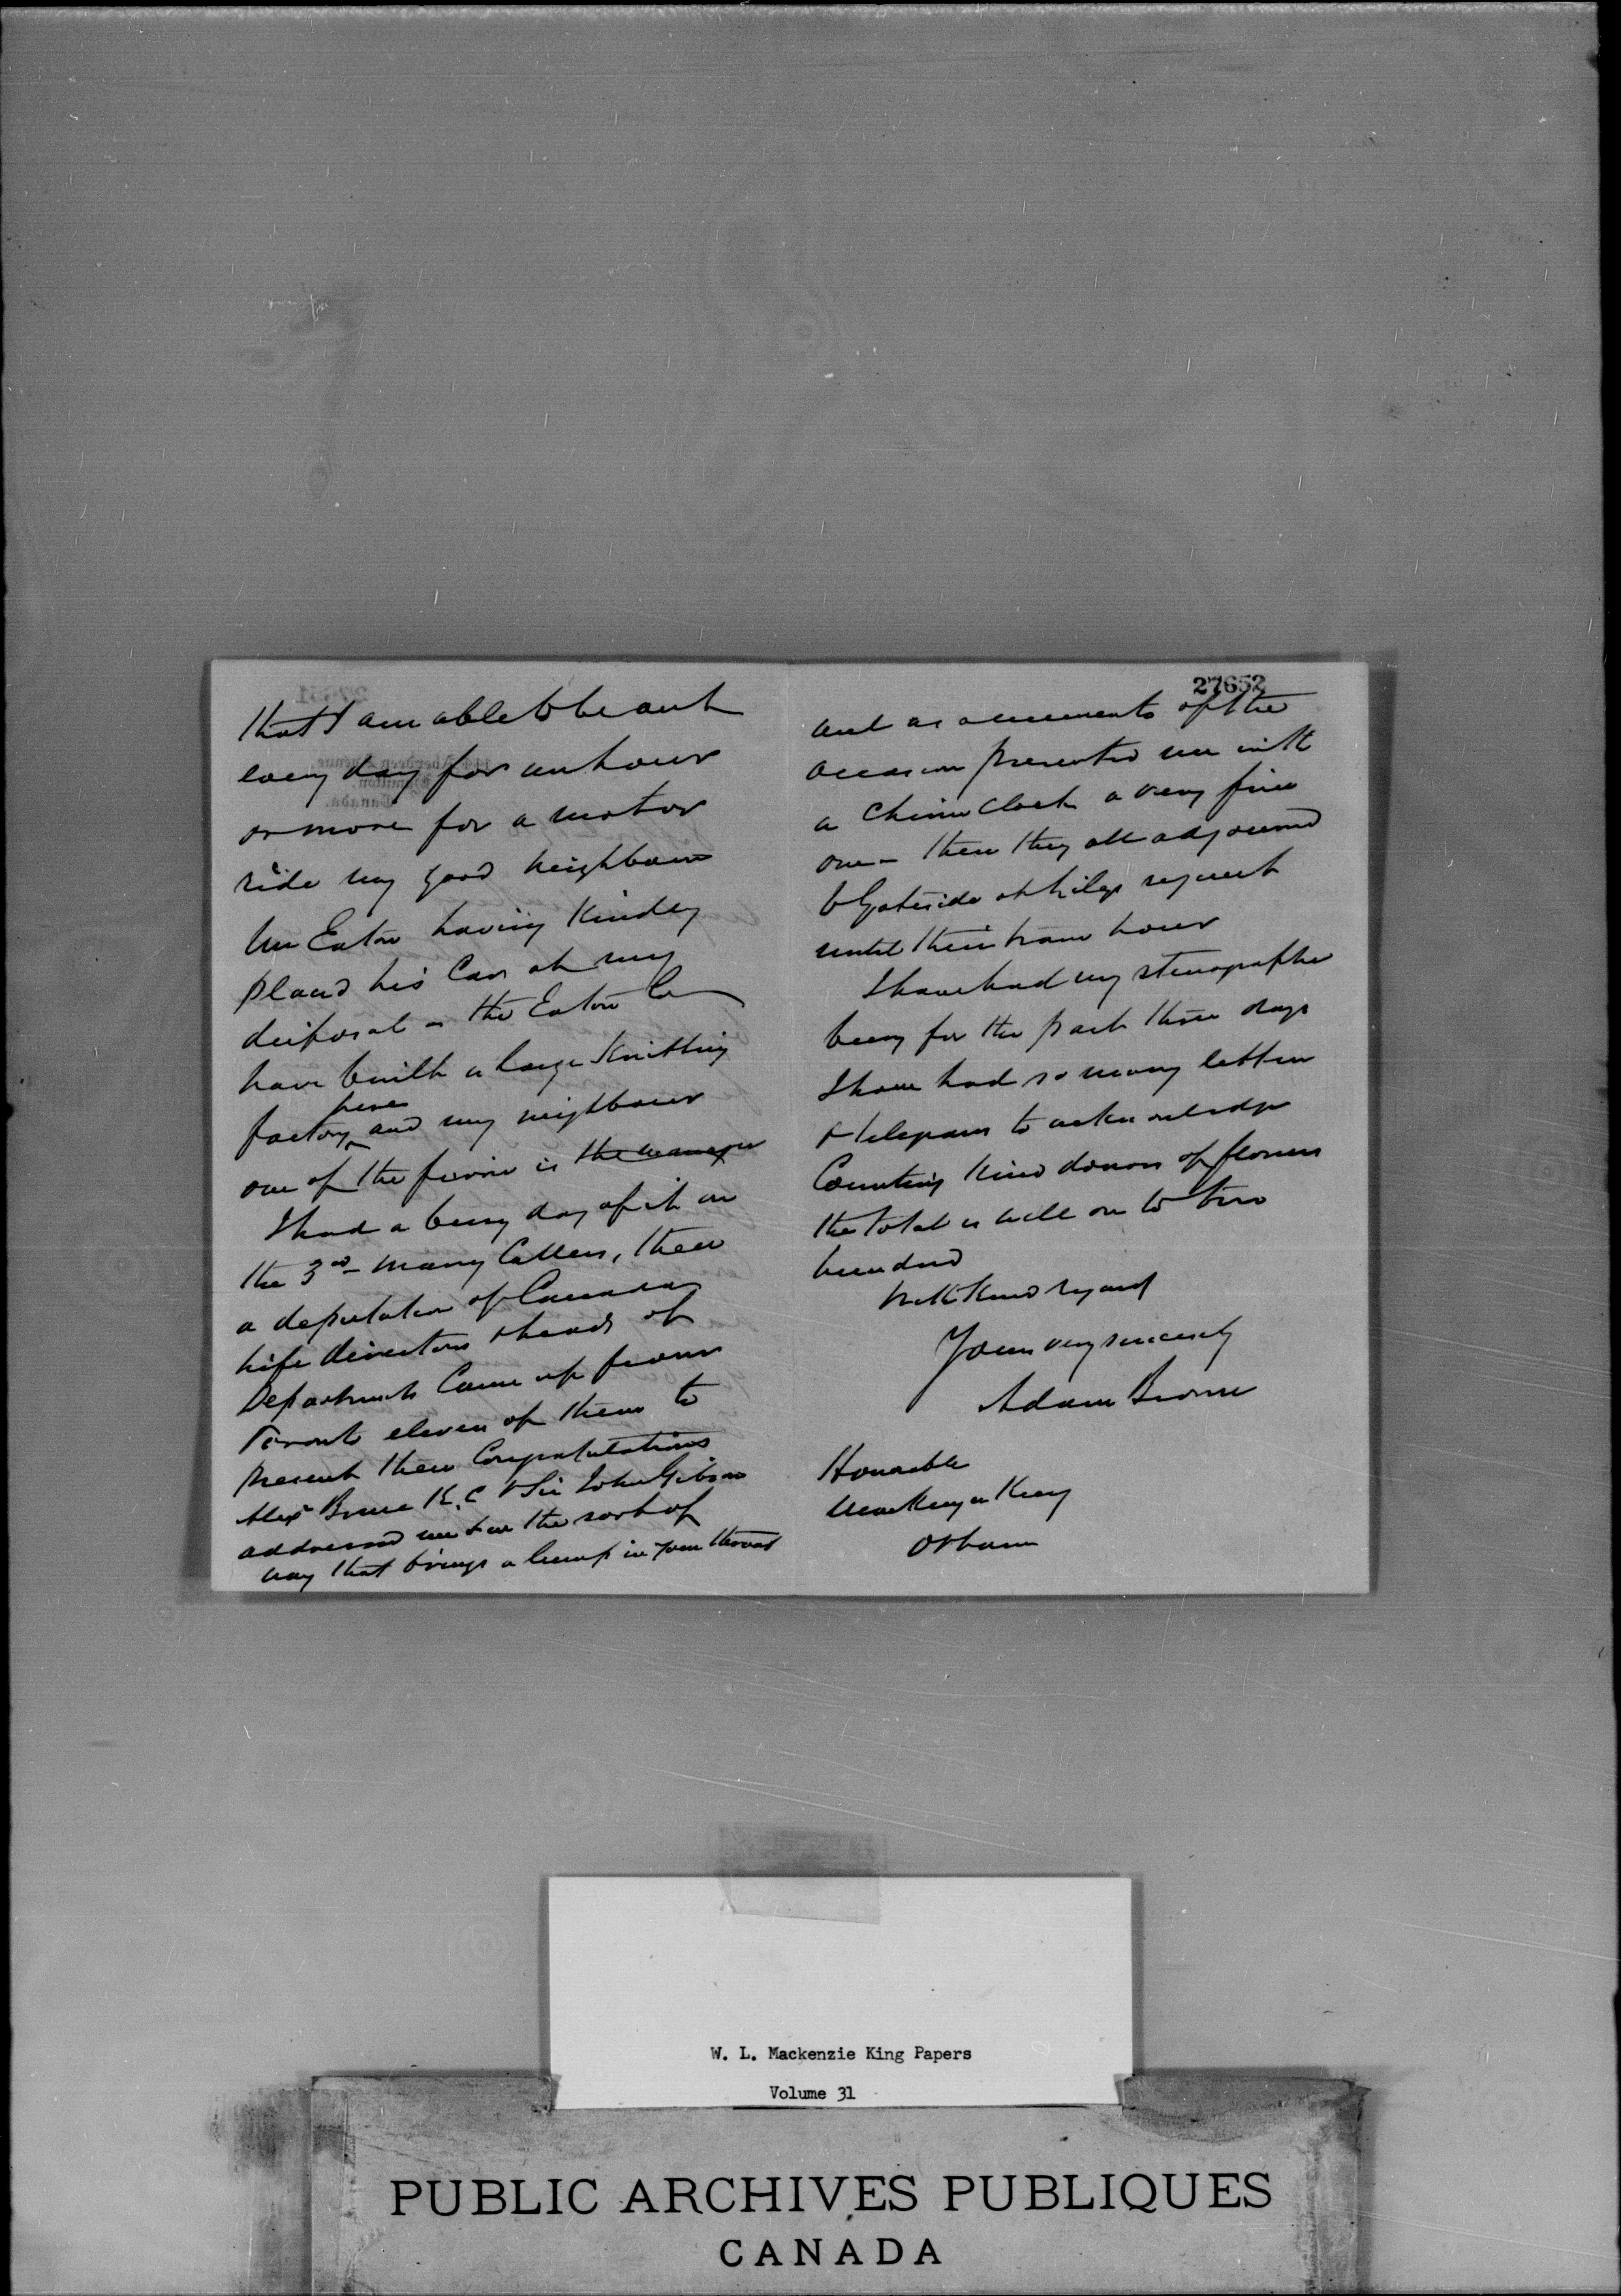 that I am able to be out
every day for an hour
or more for a motor
ride my good neighbour
Mr Eaton having kindly
placed his Car at my
disposal – the Eaton Co
have built a large Knitting
factory here and my neighbour
one of the firm is the manager
I had a busy day of it on
the 3rd – many Callers, then
a deputation of Canada
Life directors & heads of
Departments Came up from
Toronto eleven of them to
present their Congratulations
Alex Bruce K.C & Sir John Gibson
addressed me & in the sort of
way that brings a lump in your throat
27652
and as a memento of the
occasion presented me with
a Chime Clock a very fine
one – then they all adjourned
to Gateside at request
until their train hour
I have had my stenographer
busy for the past three days
I have had so many letters
& telegrams to acknowledge
Counting kind donors of flowers
the total is well on to two
hundred
With Kind regards
Yours very sincerely
Adam Brown
Honorable
Mackenzie King
Ottawa
W. L. Mackenzie King Papers
Volume 31
PUBLIC ARCHIVES PUBLIQUES
CANADA